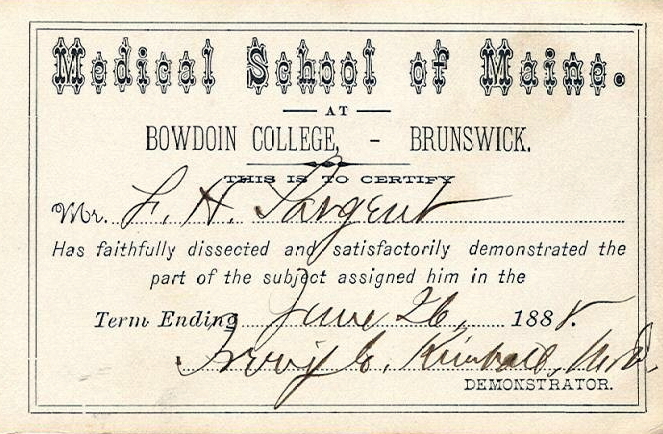 Medical School of Maine.
AT
BOWDOIN COLLEGE, - BRUNSWICK.
THIS IS TO CERTIFY
Mr. F. H. Sargent
Has faithfully dissected and satisfactorily demonstrated the
part of the subject assigned him in the
Term Ending June 26, 1888.
Irving E. Kimball, M.D.
DEMONSTRATOR.